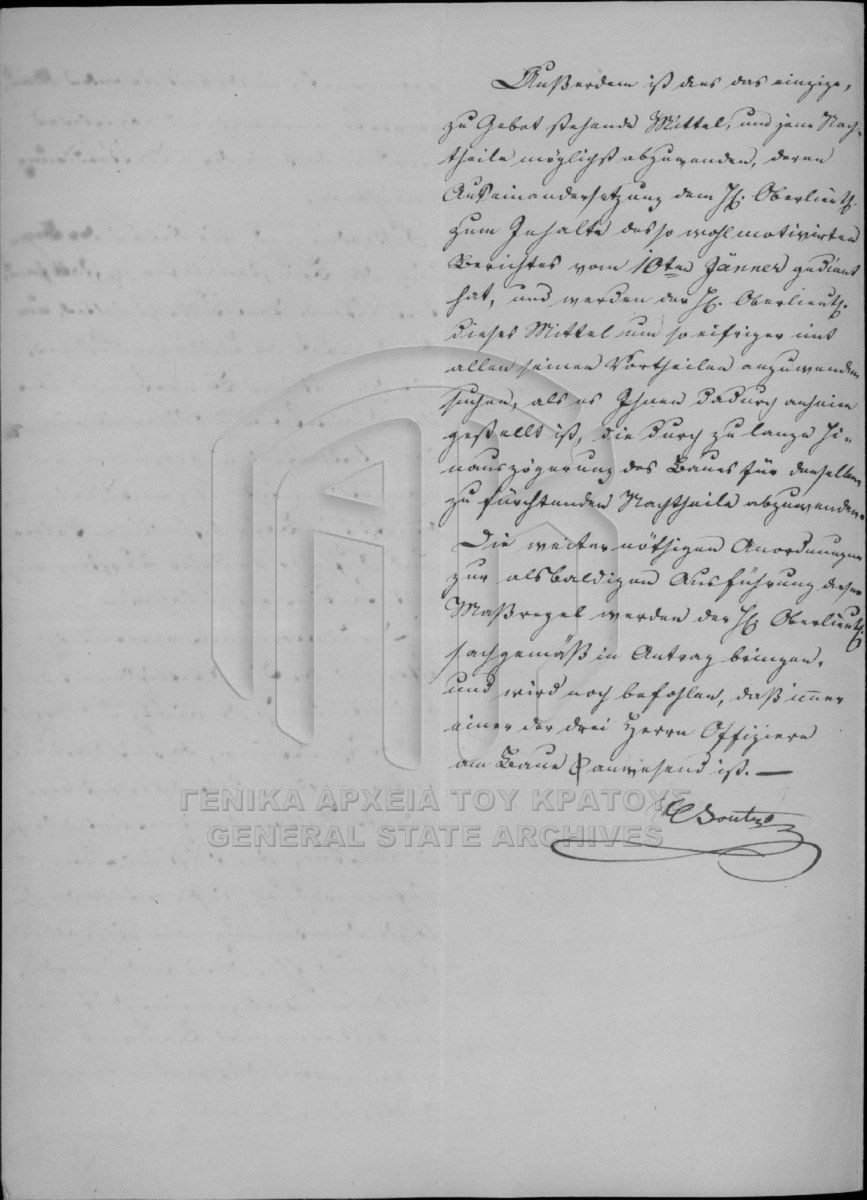 Außerdem ist dies das einzige,
zu Gebot stehende Mittel, um jene Nach-
theile möglichst abzuwenden, deren
Auseinandersetzung dem H. Oberlieut.
zum Inhalte des so wohl motivirten
Berichtes vom 10ten Jänner gedient
hat, und werden der H. Oberlieut.
dieses Mittel um so eifriger mit
allen seinen Vortheilen anzuwenden
suchen, als es Ihnen dadurch anheim
gestellt ist, die durch zu lange Hi-
nauszögerung des Baues für denselben
zu fürchtenden Nachtheile abzuwenden.
Die weiter nöthigen Anordnungen
zur alsbaldigen Ausführung dieser
Maßregel werden der H. Oberlieut.
sachgemäß in Antrag bringen,
und wird noch befohlen, daß immer
einer der drei Herrn Offiziere
am Baue anwesend ist. —
ΓΕΝΙΚΑ ΑΡΧΕΙΑ ΤΟΥ ΚΡΑΤΟΥΣ
GENERAL STATE ARCHIVES